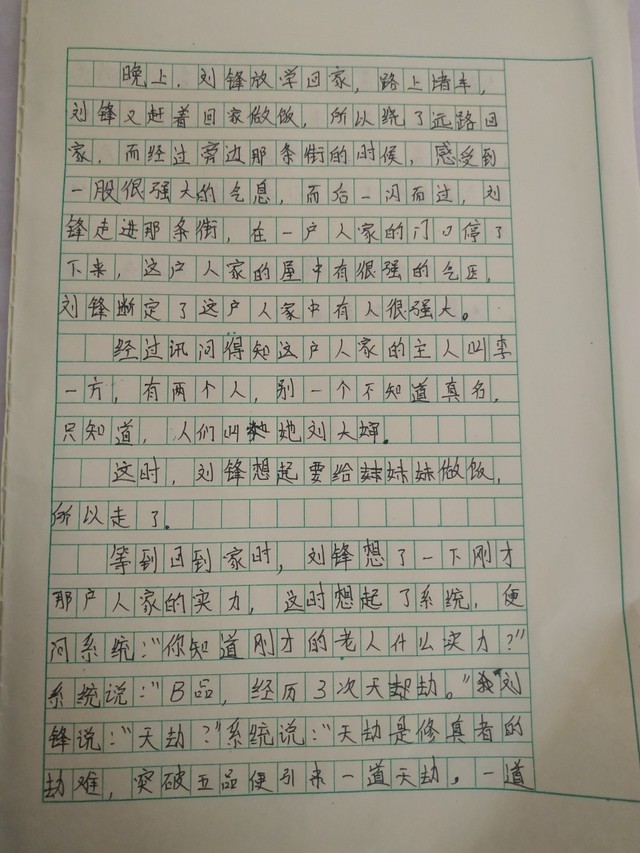 晚上，刘锋放学回家，路上堵车，
刘锋又赶着回家做饭，所以绕了远路回
家，而经过旁边那条街的时候，感受到
一股很强大的气息，而后一闪而过，刘
锋走进那条街，在一户人家的门口停了
下来，这户人家的屋中有很强的气压，
刘锋断定了这户人家中有人很强大。
经过讯问得知这户人家的主人叫李
一方，有两个人，别一个不知道真名，
只知道，人们叫她刘大婶。
这时，刘锋想起要给妹妹做饭，
所以走了。
等到回到家时，刘锋想了一下刚才
那户人家的实力，这时想起了系统，便
问系统："你知道刚才的老人什么实力？"
系统说："B品，经历3次天劫。"刘
锋说："天劫？"系统说："天劫是修真者的
劫难，突破五品便引来一道天劫。一道